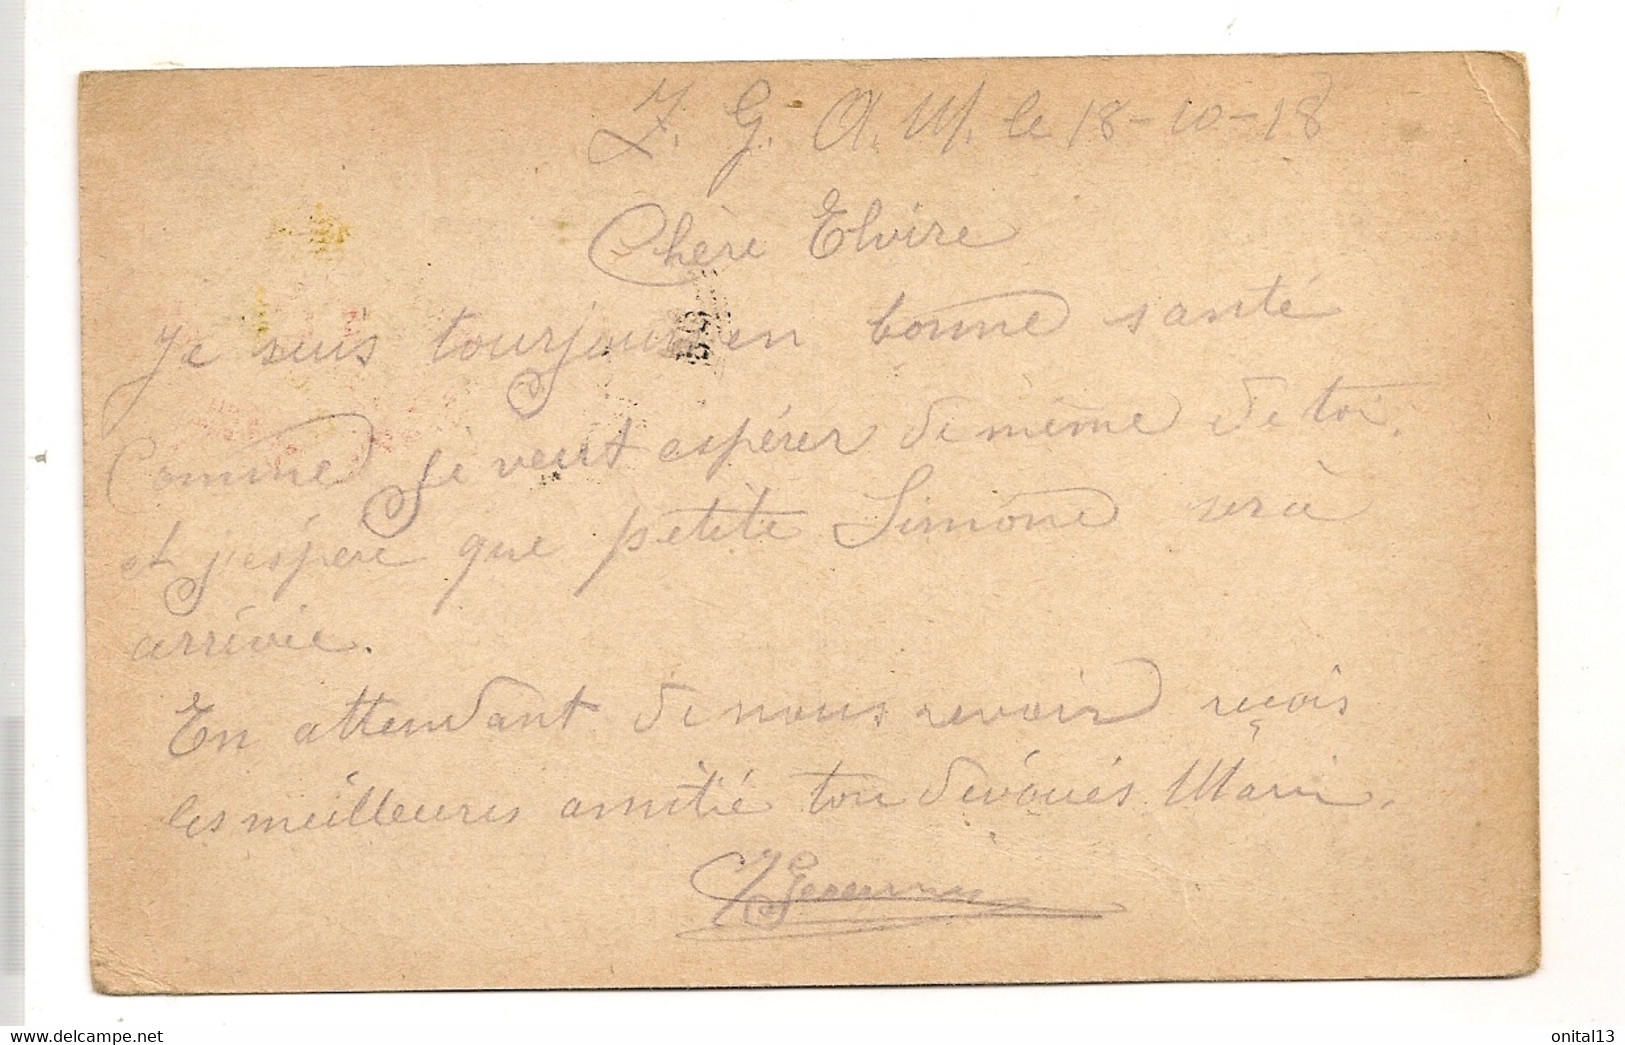 Z. G. A. M. le 18-10-18
Chère Elvire
Je suis tourjour en bonne santé
Comme je veut aspérer de même de toi.
et j'espère que petite Simone sera
arrivie.
En attendant de nous revoir reçois
les meilleures amitié ton dévoués Mari.
delcampe.net
onital13